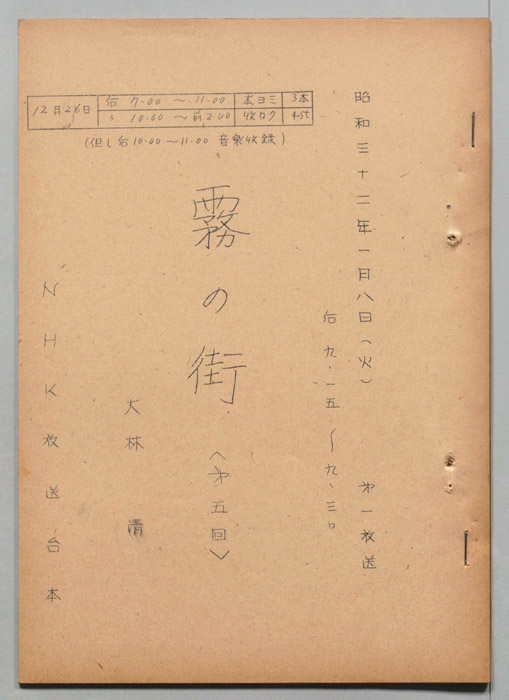 昭和三十二年一月八日(火) 第一放送
后九.一五〜九.三〇
12月26日 后 7.00 〜 11.00 本ヨミ 3本
〃 10.00 〜 前2.00 収ロク 4st
(但し后10.00〜11.00 音楽収録)
霧の街 <第五回>
大林 清
NHK放送台本